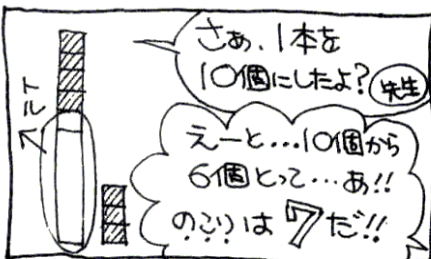 さぁ、1本を
10個にしたよ?
先生
えーと…10個から
6個とって…あ!!
のこりは7だ!!